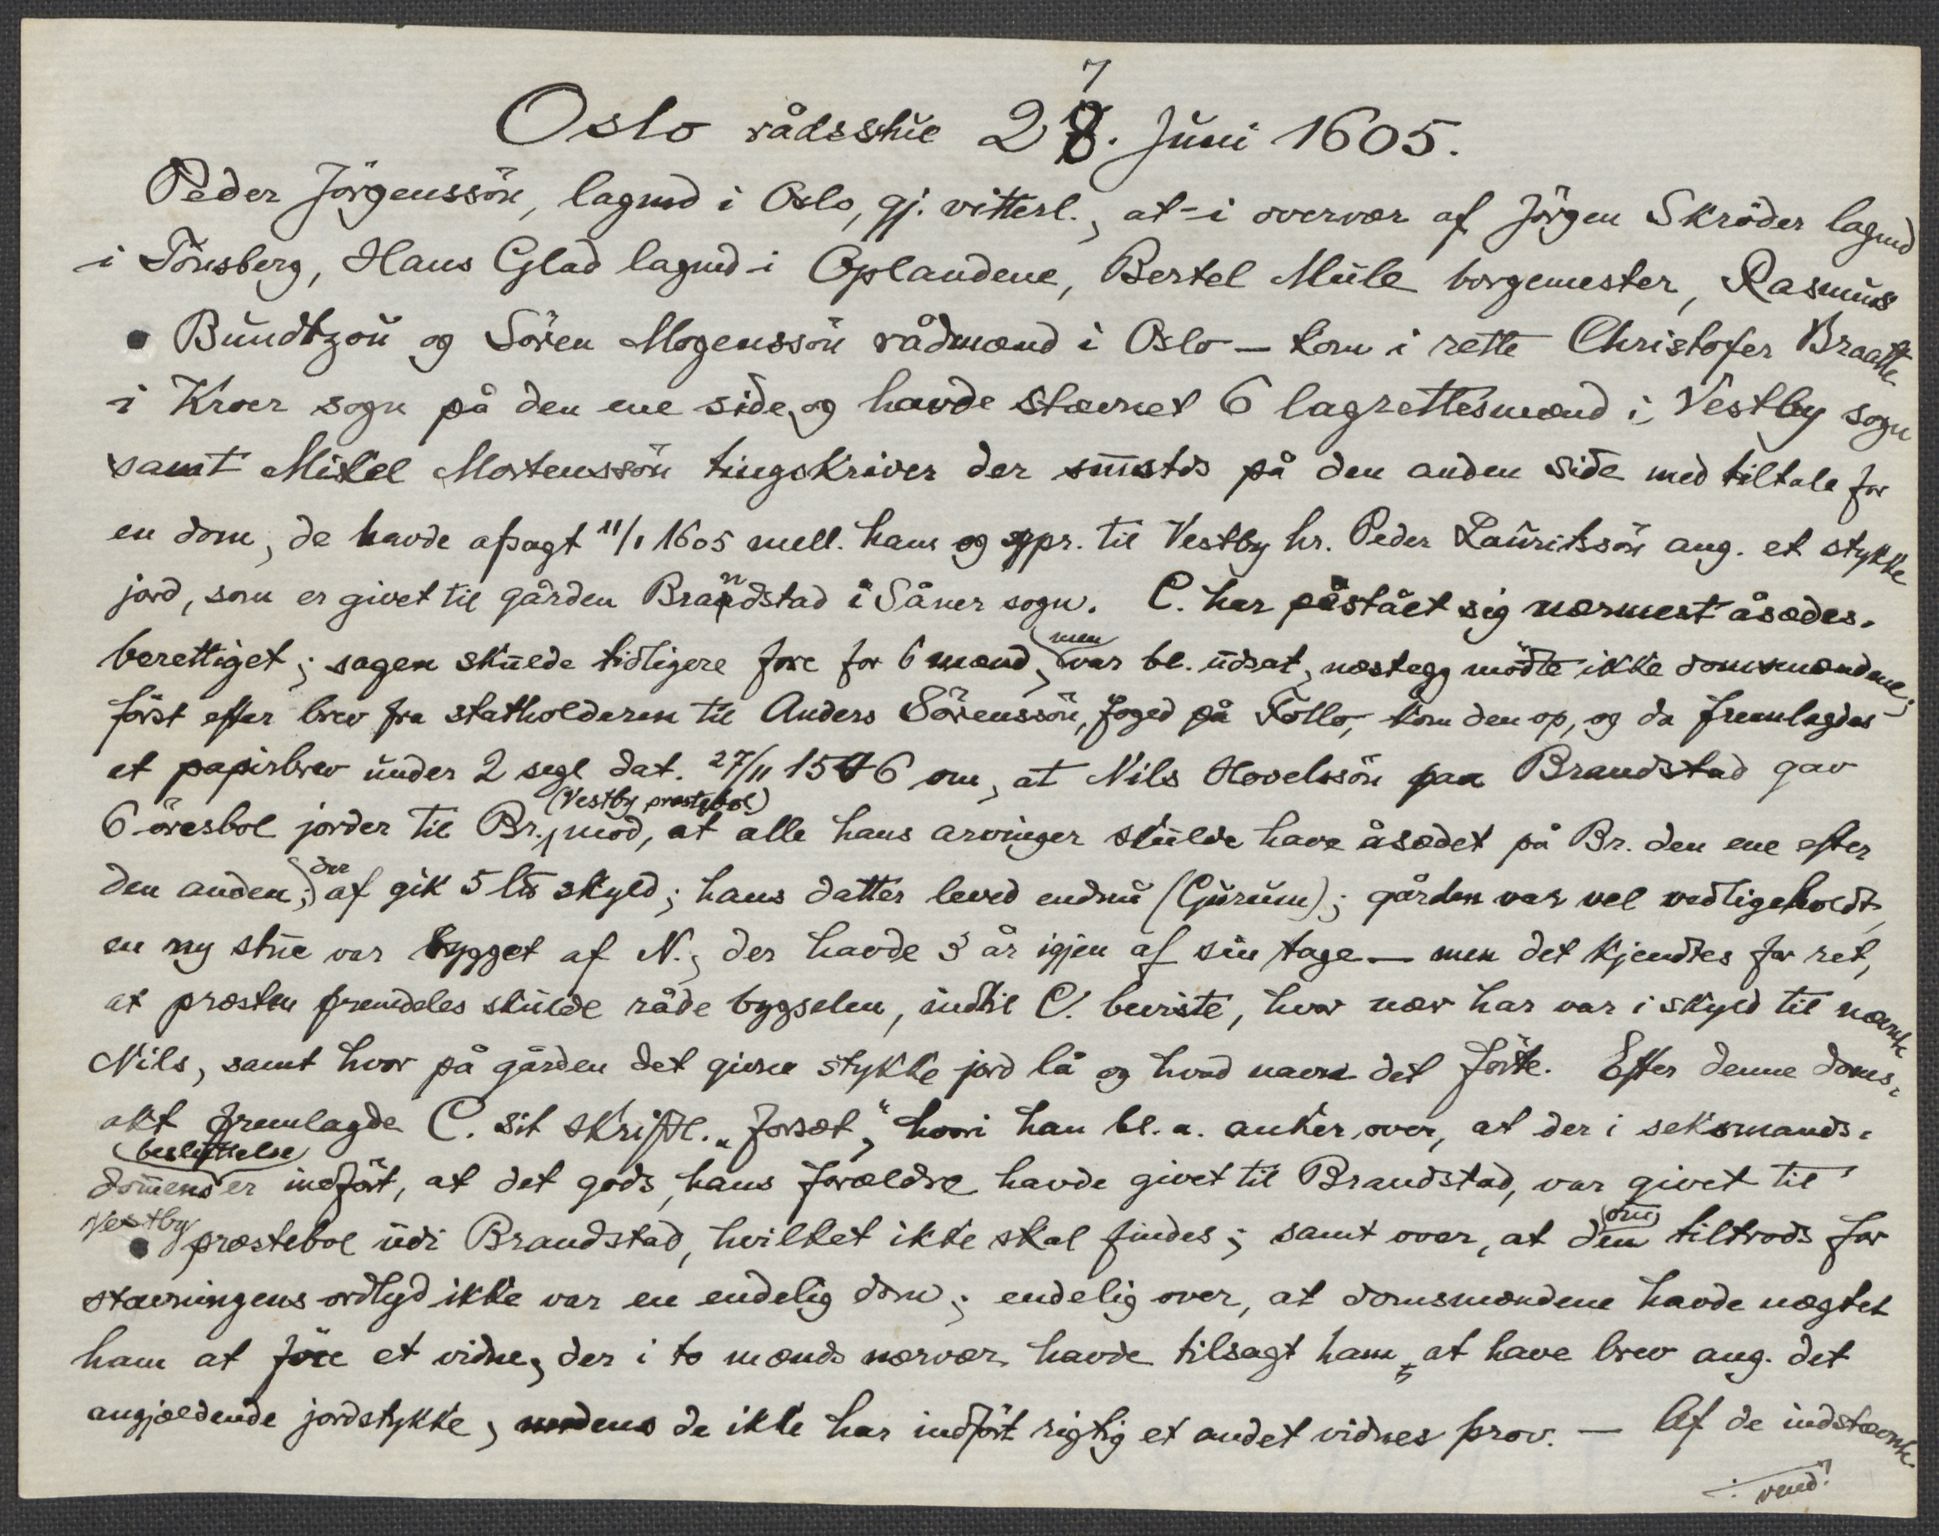 Oslo rådsstue 27. Juni 1605.
Peder Jörgenssön, lagmd i Oslo, gj. vitterl., at - i overvær af Jörgen Skröder lagmd
i Tönsberg, Hans Glad lagmd i Oplandene, Bertel Mule borgemester, Rasmus
Bundtzön og Sören Mogenssön rådmænd i Oslo - kom i rette Christofer Braatte
i Kroer sogn på den ene side, og havde stævnet 6 lagrettesmænd i Vestby sogn
samt Mikel Mortenssön tingskriver der smstds på den anden side med tiltale for
en dom, de havde afsagt 11/1 1605 mell. ham og spr. til Vestby hr. Peder Lauritssön ang. et stykke
jord, som er givet til gården Brandstad i Såner sogn. C. har påstået sig nærmest åsædes-
berettiget; sagen skulde tidligere fore for 6 mænd, men var bl. udsat, næstegg mödte ikke domsmændene;
först efter brev fra statholderen til Anders Sörenssön, foged på Follo, kom den op, og da fremlagdes
et papirbrev under 2 segl dat. 27/11 1546 om, at Nils Hovelssön paa Brandstad gav
6 öresbol jorder til Br. (Vestby prestebol), mod, at alle hans arvinger skulde have åsædet på Br. den ene efter
den anden; der af gik 5 lts skyld; hans datter leved endnu (Gurum); gården var vel vedligeholdt,
en ny stue var bygget af N., der havde 3 år igjen af sin tage - men det kjendtes for ret,
at præsten fremdeles skulde råde bygselen, indtil C. beviste, hvor nær han var i skyld til nævnte
Nils, samt hvor på gården det givne stykke jord lå og hvad navn det förte. Efter denne doms-
akt fremlagde C. sit skriftl. "forsæt," hvori han bl. a. anker over, at der i seksmands-
domens beslyttelse er indfört, at det gods, hans forældre havde givet til Brandstad, var givet til
Vestby præstebol udi Brandstad, hvilket ikke skal findes; samt over, at den tiltrods for
stævningens ordlyd ikke var en endelig dom; endelig over, at domsmændene havde nægtet
ham at före et vidne, der i to mænds nærvær havde tilsagt ham, at have brev ang. det
angjældende jordstykke, medens de ikke har indfört rigtig et andet vidnes prov. - Af de indstævnte
vend!